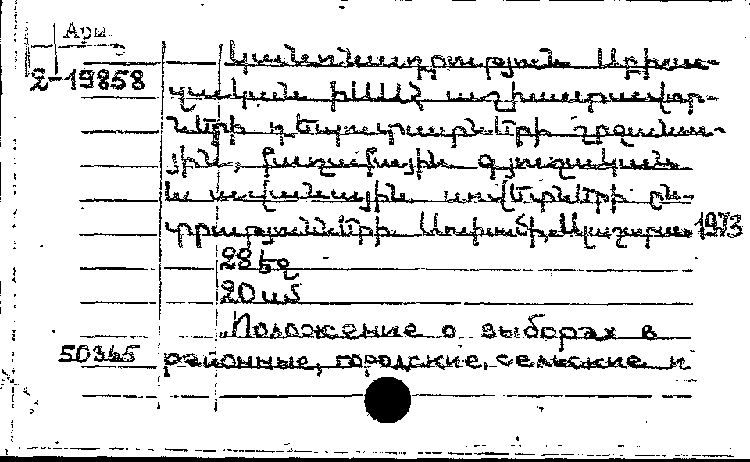 Ары
2-19858
Կանոնադրություն Աբխա-
զական ԻՍՍՀ աշխատավոր-
ների դեպուտատների շրջանա-
յին, քաղաքային գյուղական
և ավանային սովետների ըն-
տրությունների. Սուխումի, Ալաշարա 1973
28 էջ
20 սմ
„Положение о выборах в
50345 районные, городские, сельские и